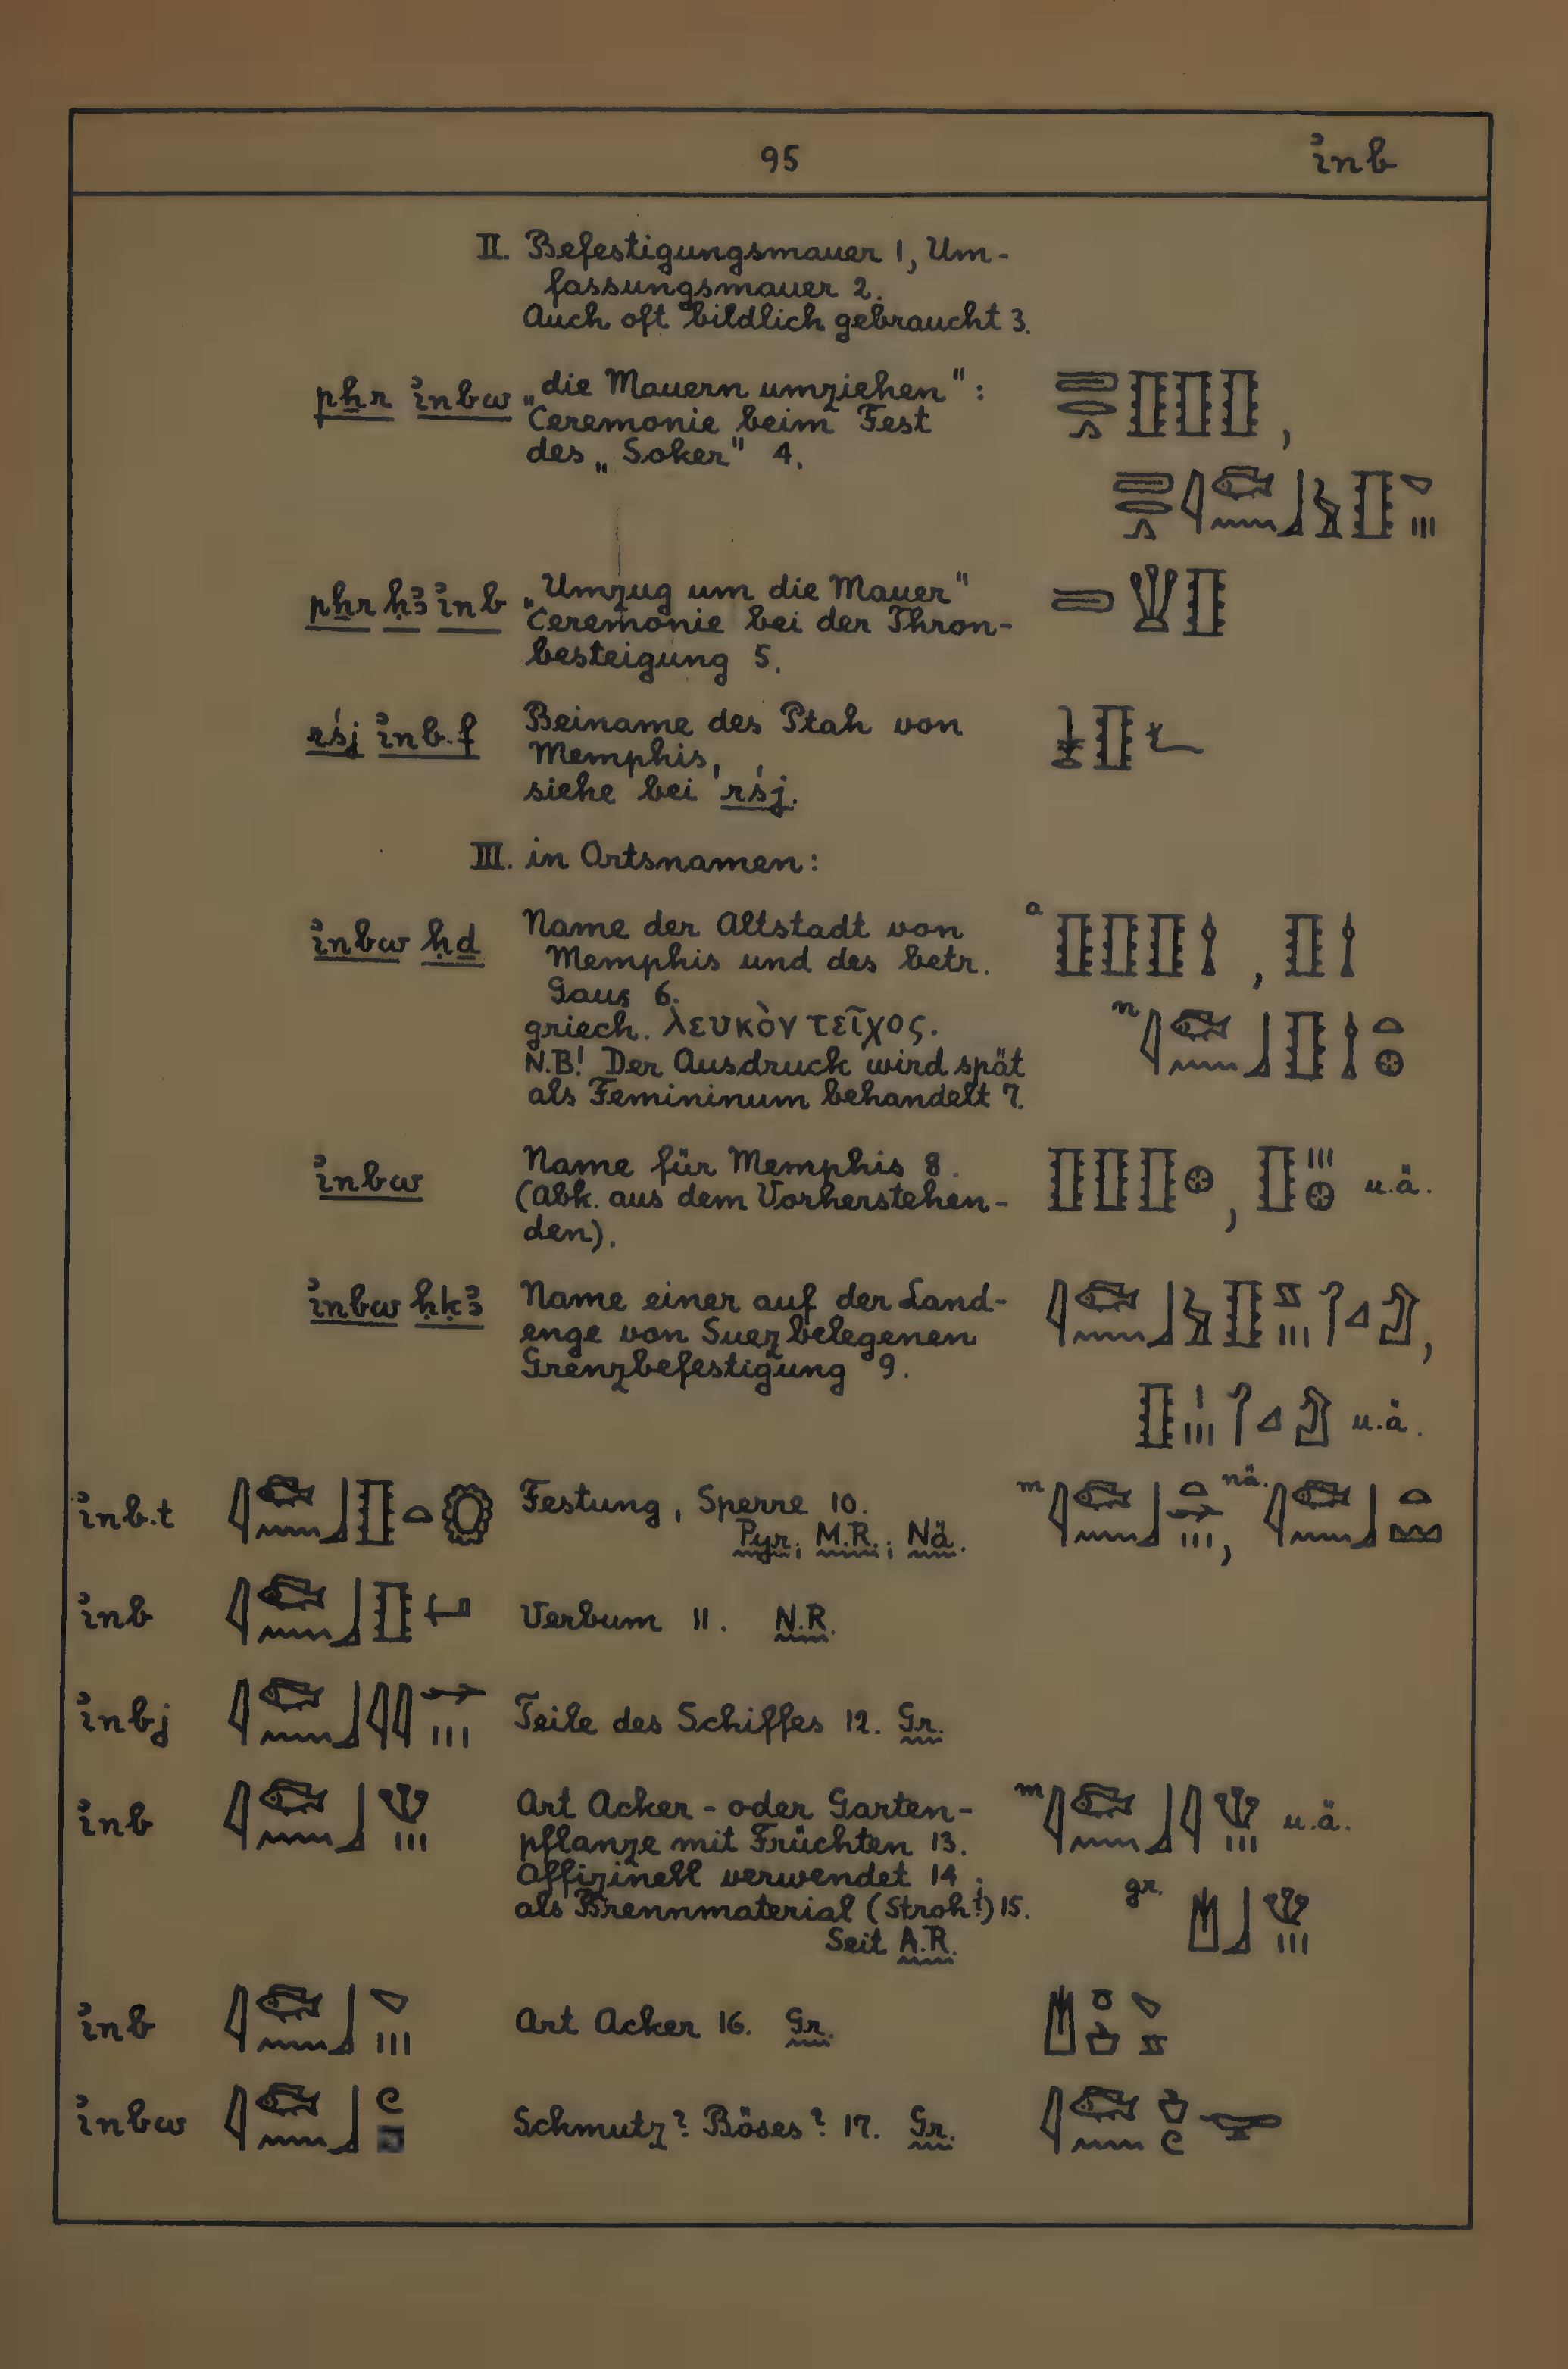 95 ỉnb
II. Befestigungsmauer 1, Um-
fassungsmauer 2.
Auch oft bildlich gebraucht 3.
pẖr ỉnbw „die Mauern umziehen":
Ceremonie beim Fest
des „Soker" 4.
pẖr ḥꜣ ỉnb „Umzug um die Mauer"
Ceremonie bei der Thron-
besteigung 5.
rśj ỉnb.f Beiname des Ptah von
Memphis,
siehe bei rśj.
III. in Ortsnamen:
ỉnbw ḥḏ Name der Altstadt von a
Memphis und des betr.
Gaus 6.
griech. λευκὸν τεῖχος. n
N.B! Der Ausdruck wird spät
als Femininum behandelt 7.
ỉnbw Name für Memphis 8. u.ä.
(Abk. aus dem Vorherstehen-
den).
ỉnbw ḥḳꜣ Name einer auf der Land-
enge von Suez belegenen
Grenzbefestigung 9.
u.ä.
ỉnb.t Festung, Sperre 10. m nä.
Pyr.; M.R.; Nä.
ỉnb Verbum 11. N.R.
ỉnbj Teile des Schiffes 12. Gr.
ỉnb Art Acker- oder Garten- m u.ä.
pflanze mit Früchten 13.
Offizinell verwendet 14;
als Brennmaterial (Stroh?) 15. gr.
Seit A.R.
ỉnb Art Acker 16. Gr.
ỉnbw Schmutz? Böses? 17. Gr.